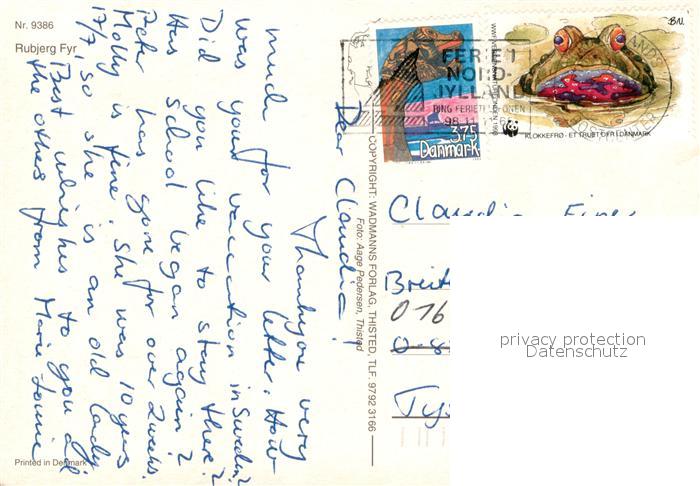 Nr. 9386
Rubjerg Fyr
Dear Claudia!
Thank you very
much for your letter. How
was your vaccation in Sweden?
Did you like to stay there?
Has school began again?
Peter has gone for over 2 weeks.
Molly is fine. She was 10 years
17/7, so she is an old lady.
Best whishes to you all
the others from Marie-Louise
Printed in Denmark
COPYRIGHT: WADMANNS FORLAG, THISTED, TLF. 9792 3166
Foto: Aage Pedersen, Thisted
FERIE I
NORD-
JYLLAND
RING FERIETELEFONEN
98 11
375
Danmark
BN.
WWF VERDENSNATURFONDEN
KLOKKEFRØ - ET TRUET DYR I DANMARK
Claudia
Breit
016
O-8
Tys
privacy protection
Datenschutz